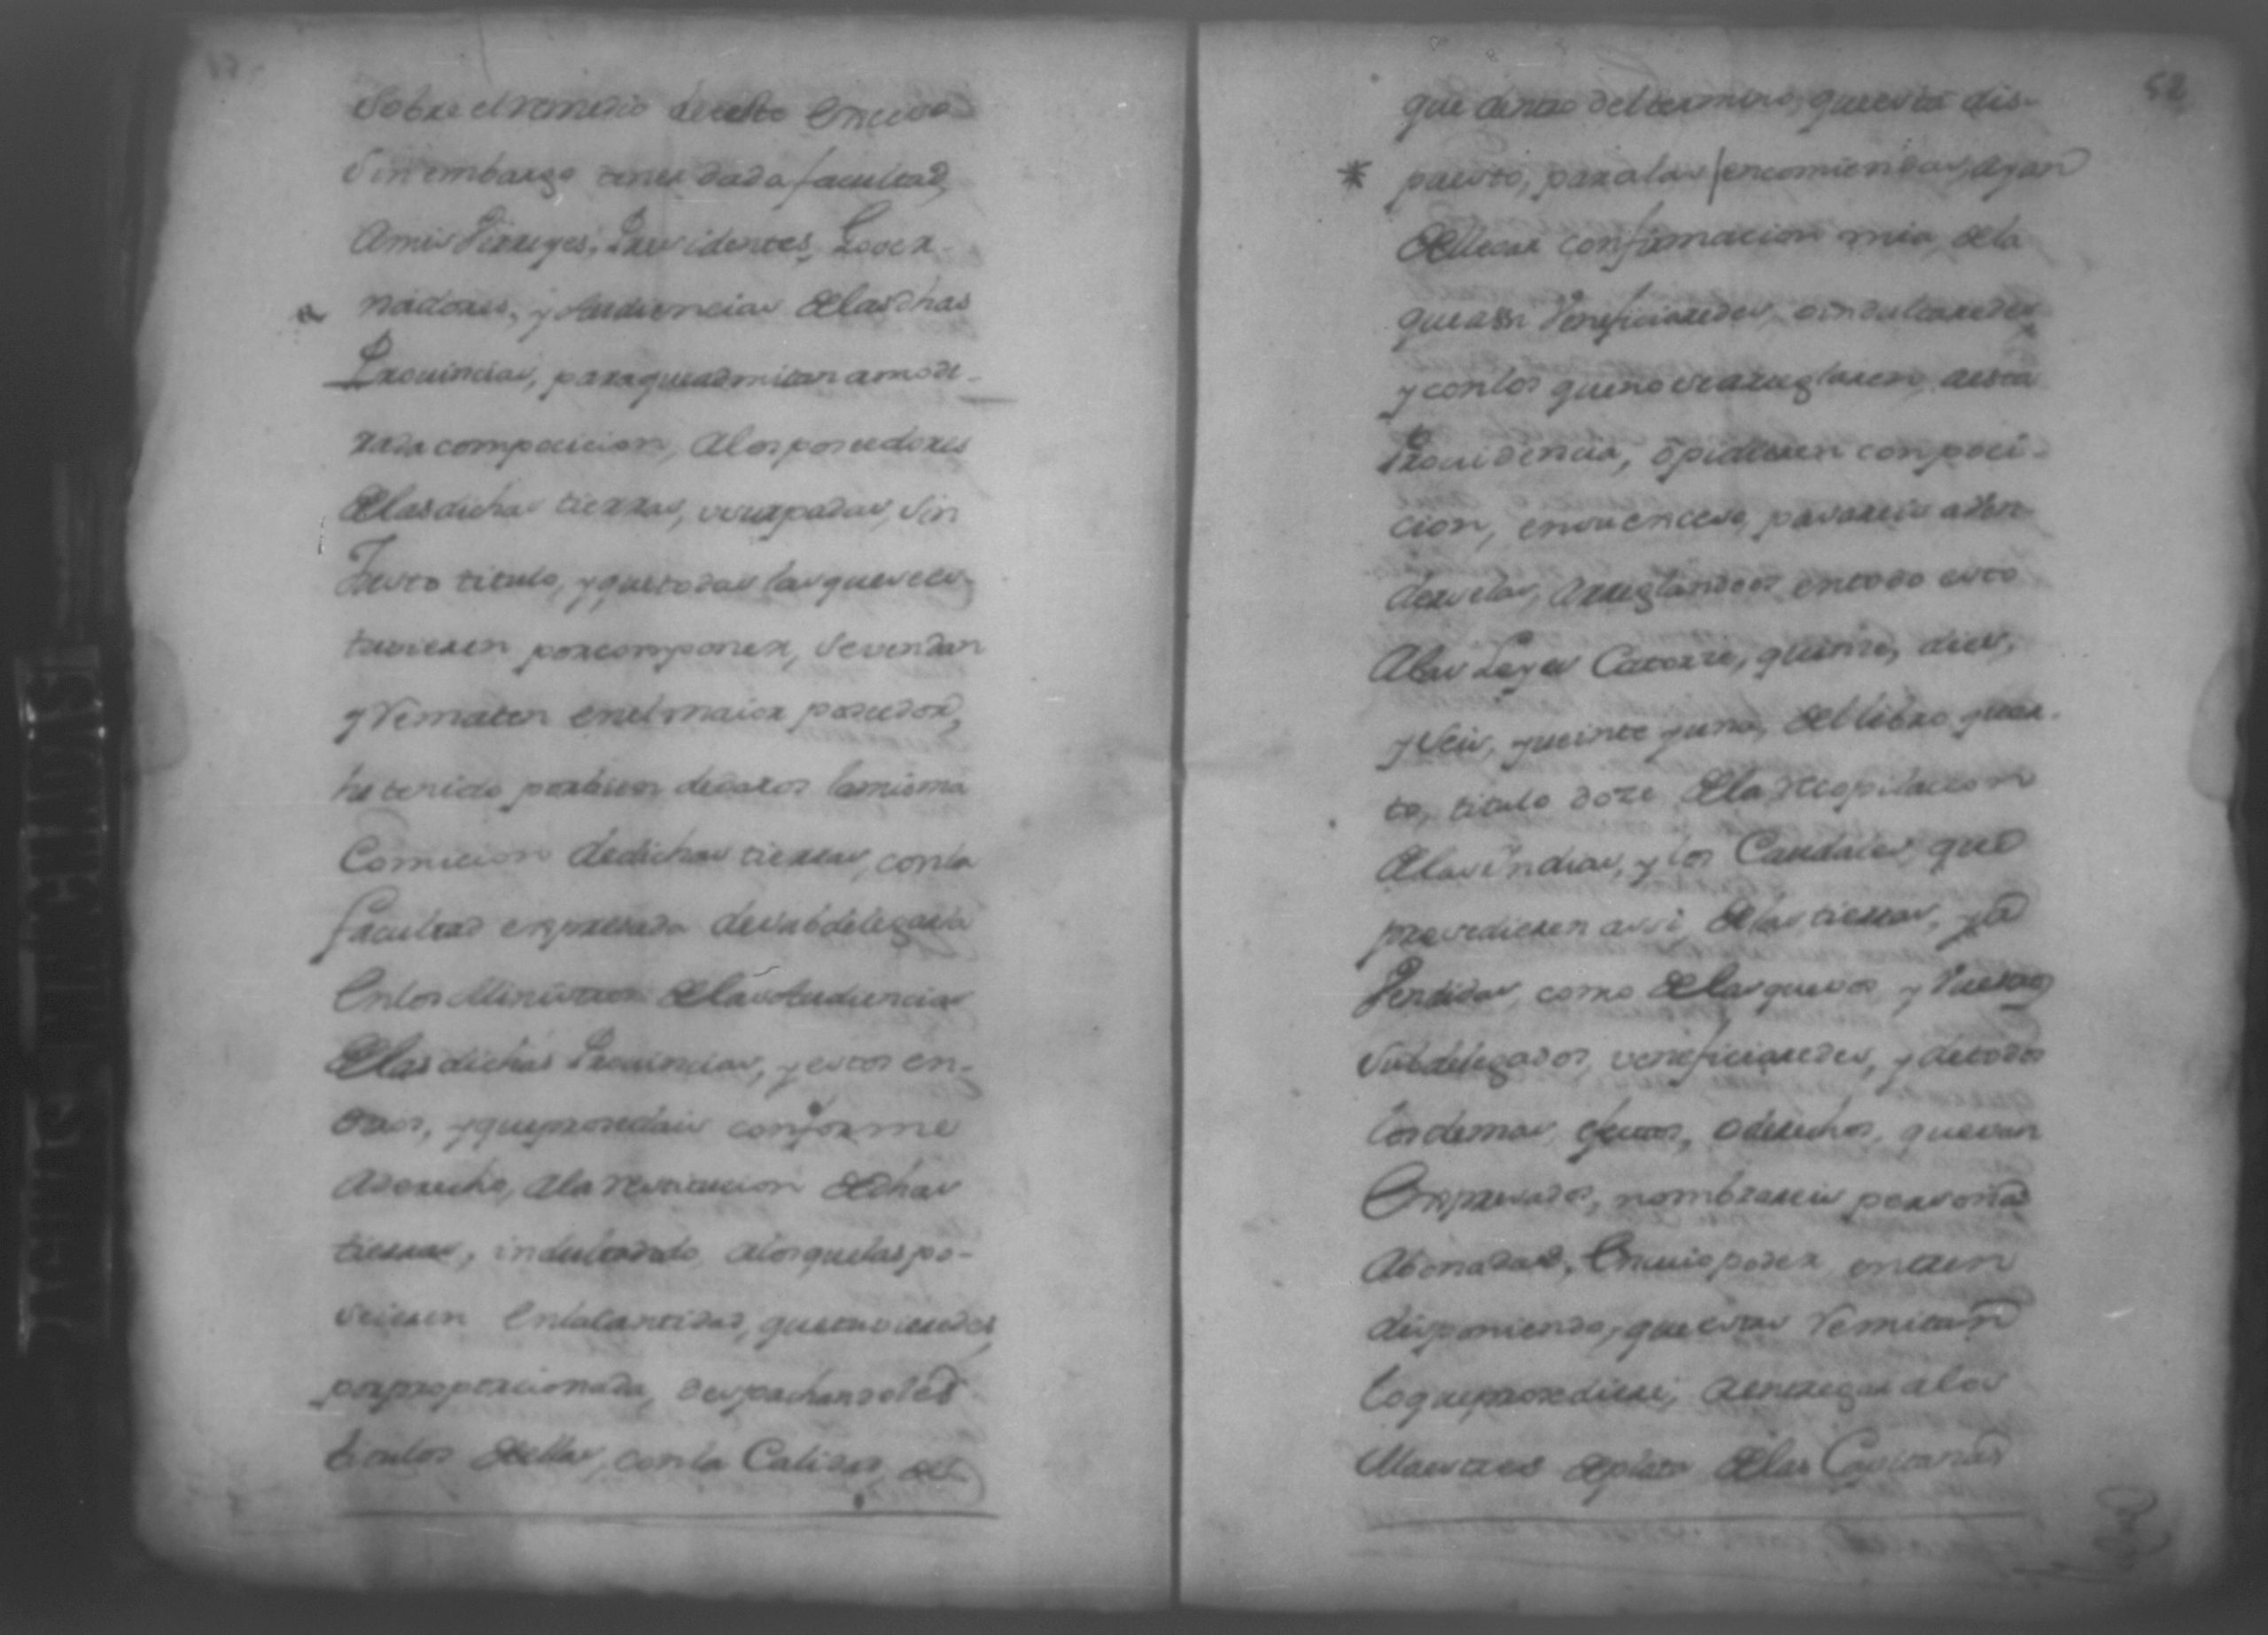 Sobre el remedio de este exceso
Sin embargo tener dada facultad,
Amis Virreyes, Presidentes, Gover-
nadores, y Audiencias delas dhas
Provincias, paraque admitan amode-
rada composicion, alos poseedores
delas dichas tierras, usurpadas, sin
Justo titulo, y que todas las que estu-
tuvieren por componer, se vendan
y Rematen en el maior
he tenido por bien de daros la misma
Comicion de dichas tierras, con la
facultad expresada de subdelegarla
En los Ministros delas Audiencias
delas dichas Provincias, y estos en
otros, y que procedais conforme
a derecho, ala restitucion de dhas
tierras, indultando alos que las po-
seieren en la cantidad, que tuvieredes
por proporcionada, despachandoles
titulos de ellas, con la Calidad de
52
que dentro del termino, que esta dis-
puesto, para las encomiendas, ayan
de llevar confirmacion mia, de la
que assi Veneficiaredes, o indultaredes
y con los que no se arreglaren, a esta
Providencia, o pidieren compoci-
cion, en su
arreglandoos en todo esto
Alas Leyes Catorze, quinze, diez,
y seis, y veinte y una, del libro quar-
to, titulo doze de la recopilacion
de las indias, y los Caudales, que
procedieren assi, de las tierras, ya
Vendidas, como de las que vos y Vuestros
Subdelegados, veneficiaredes, y de todos
los demas efectos, o derechos, que van
Expresados, nombrareis personas
Abonadas, En cuio poder entren
disponiendo, que estas Remitan
lo que procediere, a entregar a los
Maestres de plata de las Capitanas